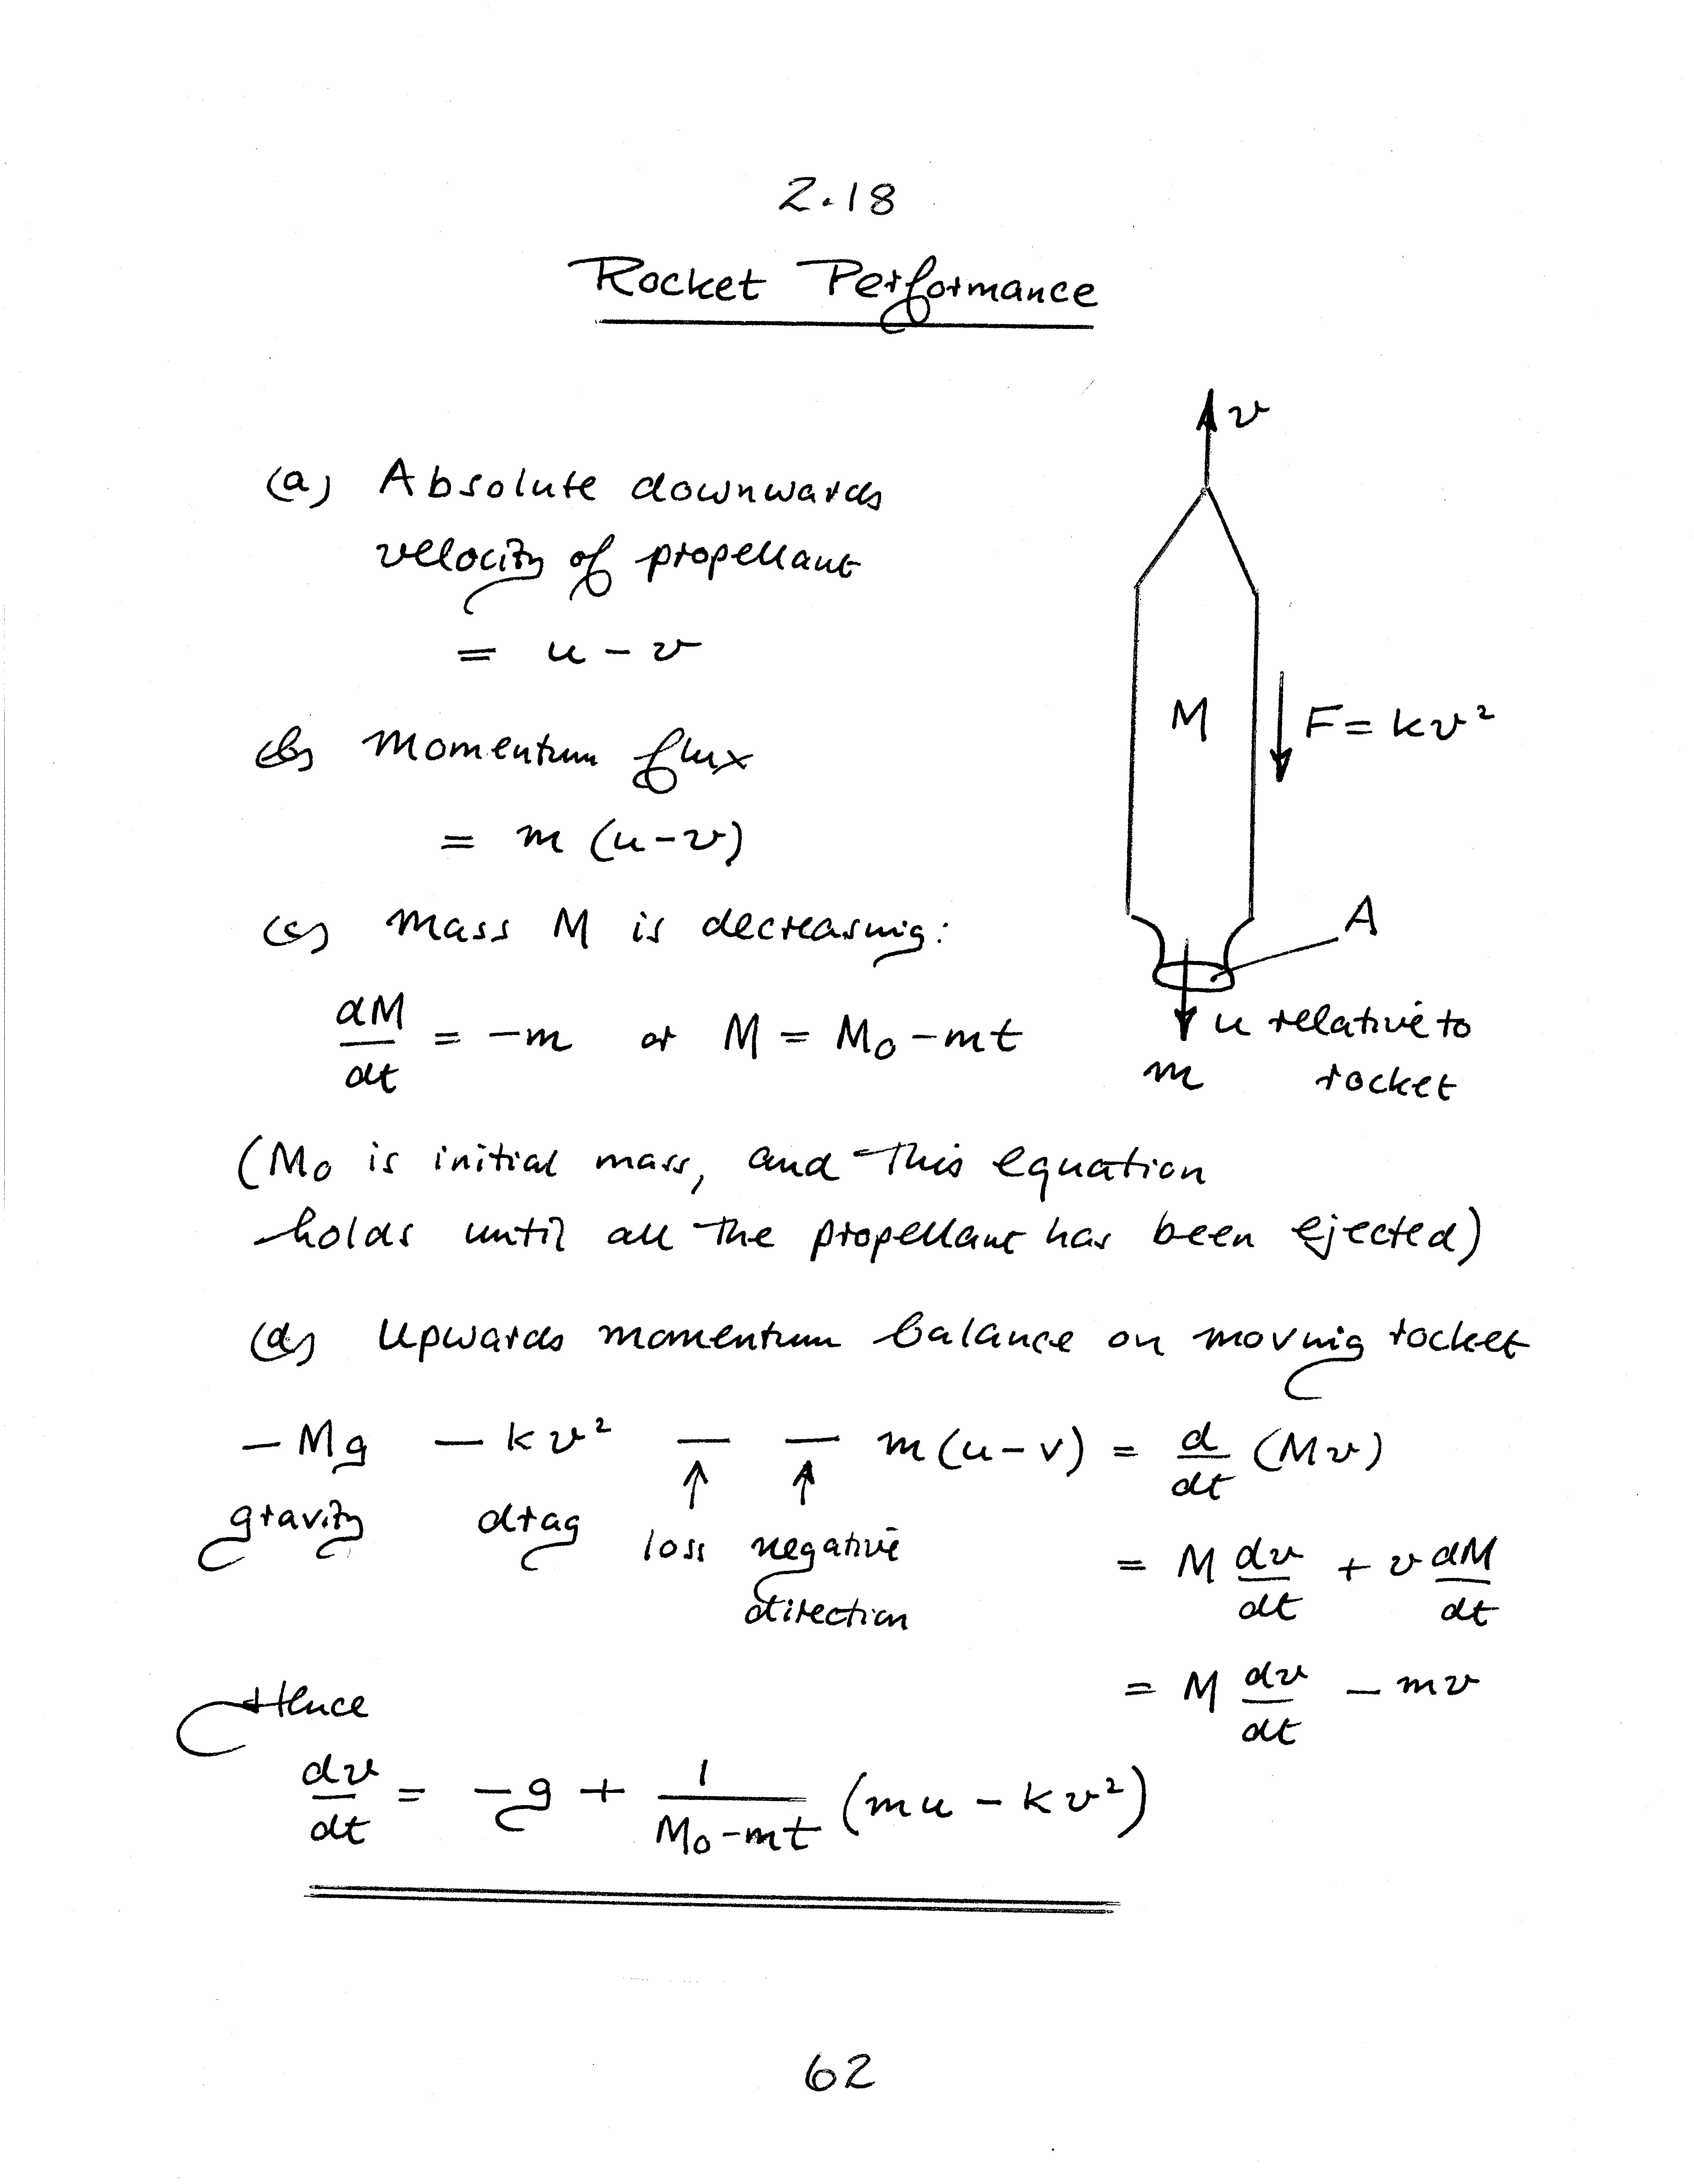 2.18
Rocket Performance
v
(a) Absolute downwards
velocity of propellant
= u - v
M
F = kv²
(b) Momentum flux
= m (u-v)
(c) Mass M is decreasing:
A
dM/dt = -m or M = M₀ - mt
u relative to
m rocket
(M₀ is initial mass, and this equation
holds until all the propellant has been ejected)
(d) Upwards momentum balance on moving rocket
- Mg - kv² - - m(u-v) = d/dt (Mv)
↑ ↑
gravity drag loss negative
direction
= M dv/dt + v dM/dt
= M dv/dt - mv
Hence
dv/dt = -g + 1/(M₀-mt) (mu - kv²)
62